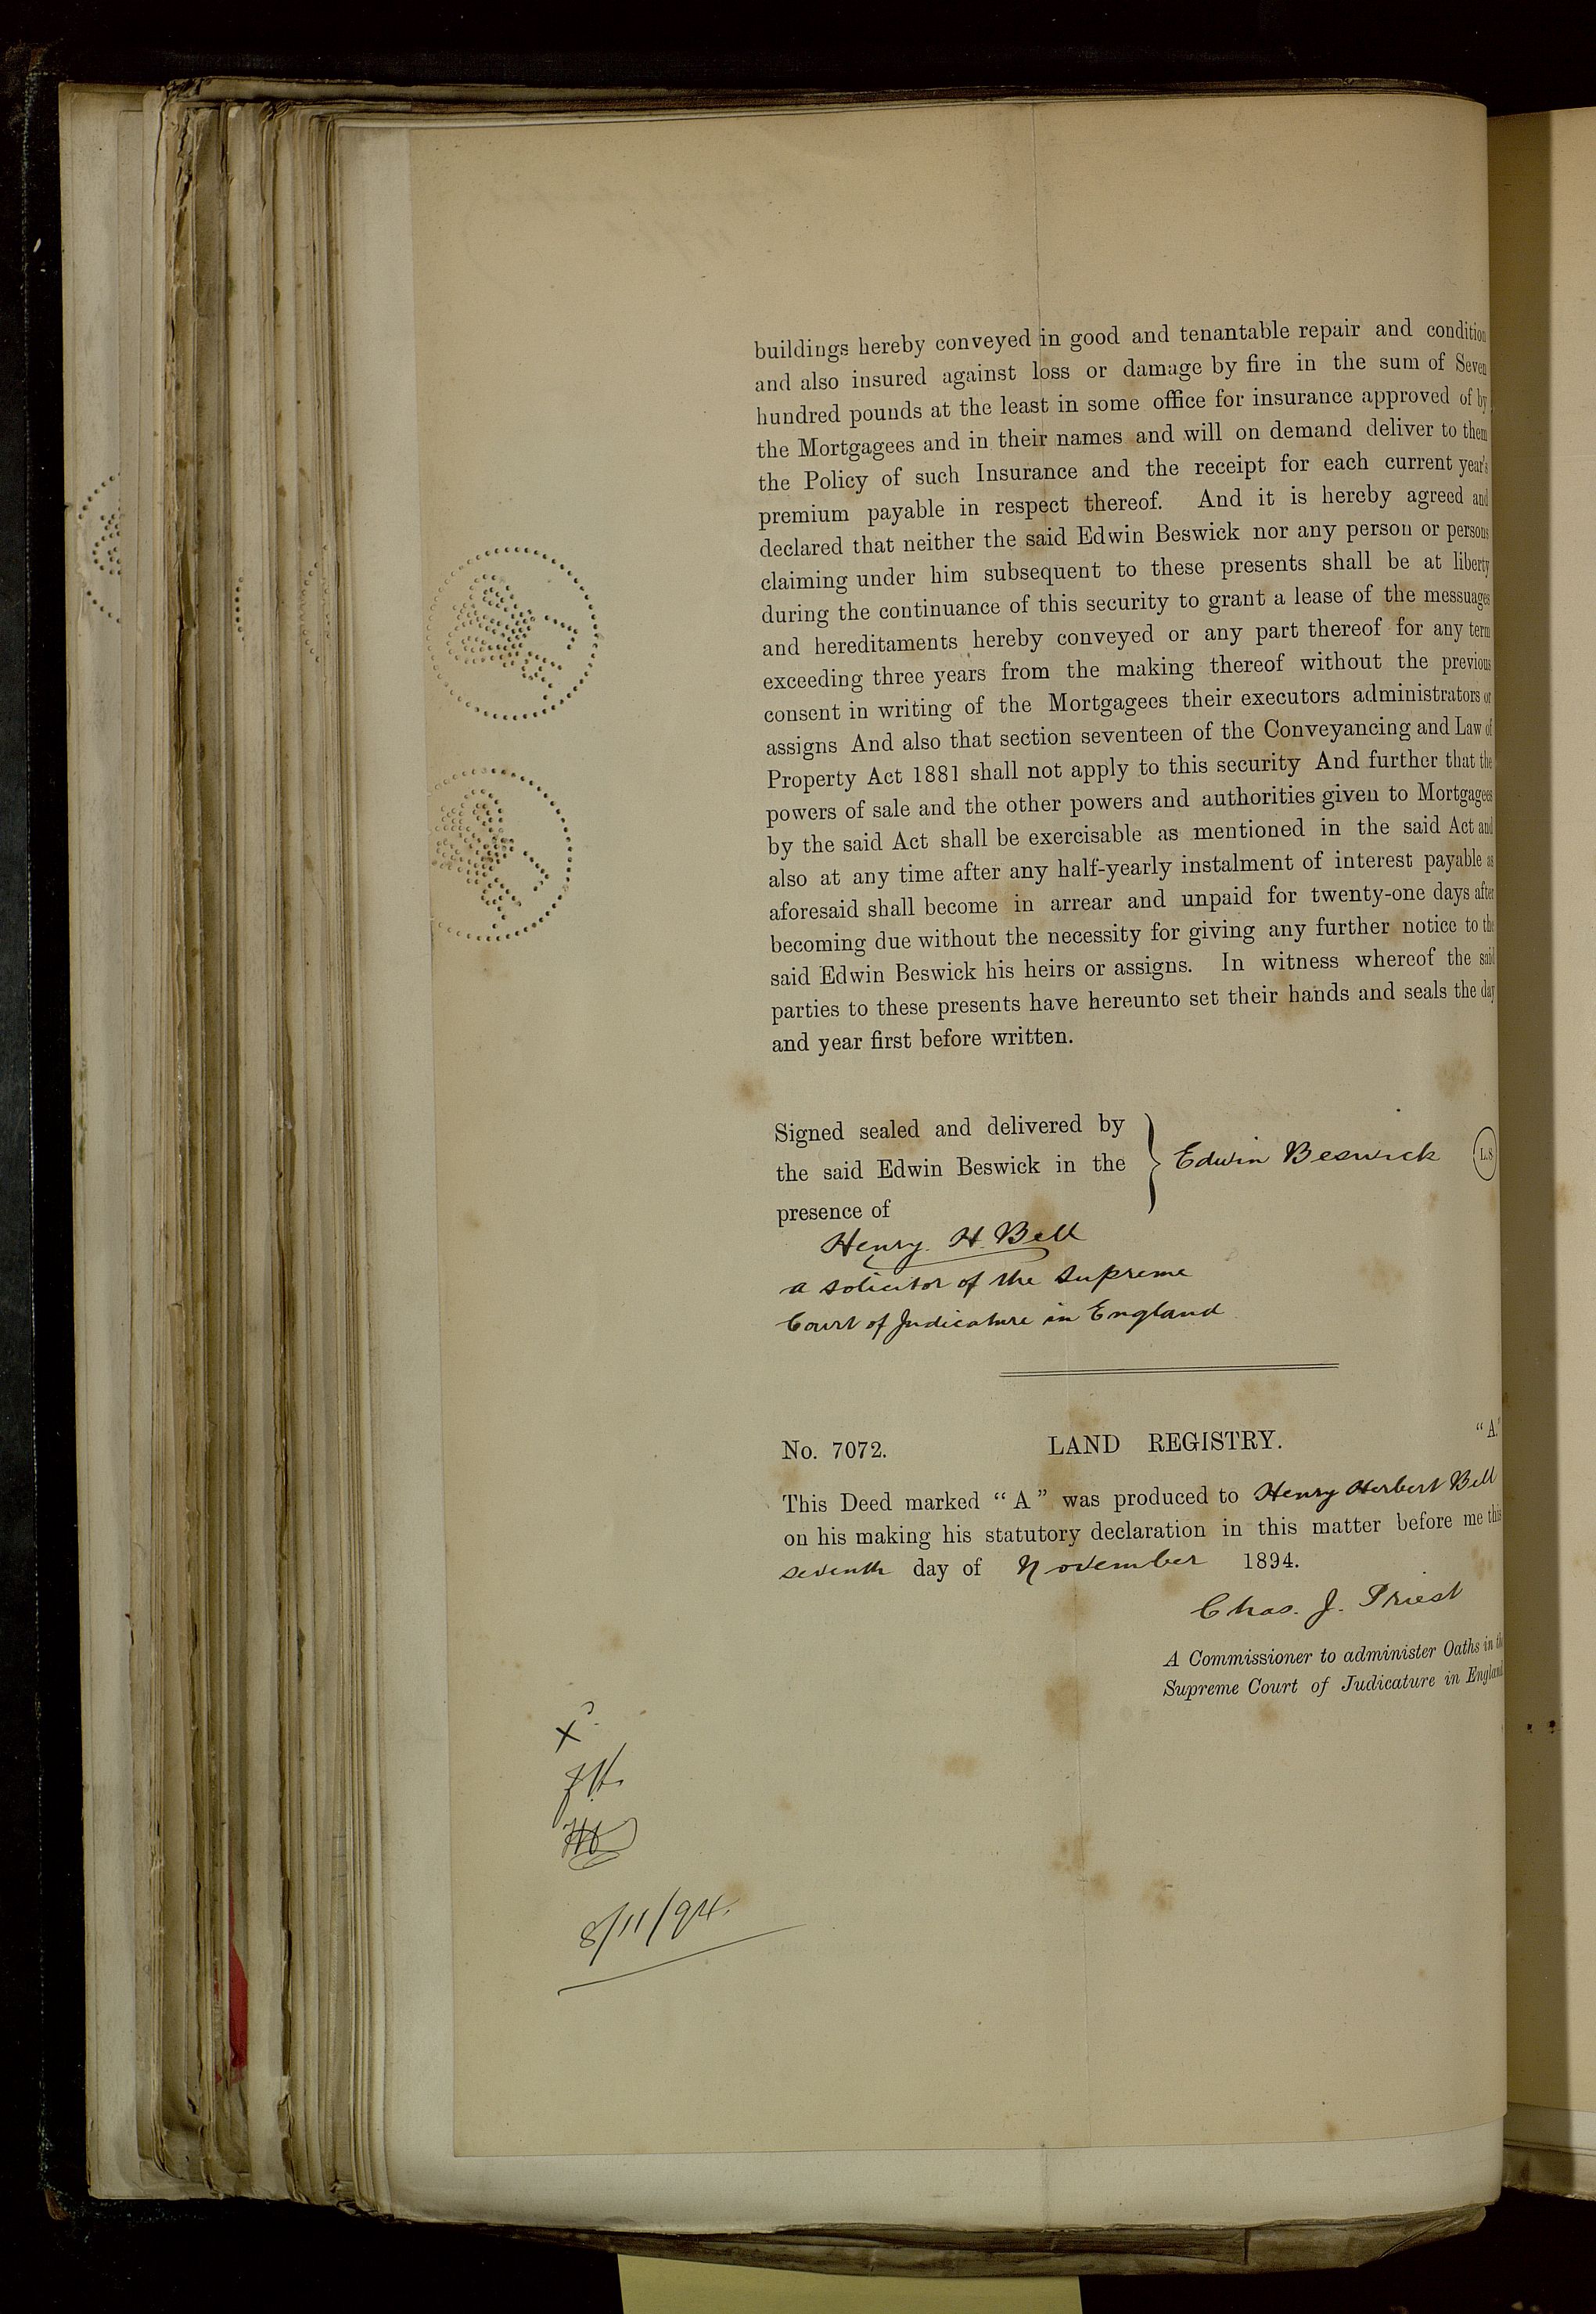 buildings hereby conveyed in good and tenantable repair and condition
and also insured against loss or damage by fire in the sum of Seven
hundred pounds at the least in some office for insurance approved of by
the Mortgagees and in their names and will on demand deliver to them
the Policy of such Insurance and the receipt for each current year's
premium payable in respect thereof. And it is hereby agreed and
declared that neither the said Edwin Beswick nor any person or persons
claiming under him subsequent to these presents shall be at liberty
during the continuance of this security to grant a lease of the messuages
and hereditaments hereby conveyed or any part thereof for any term
exceeding three years from the making thereof without the previous
consent in writing of the Mortgagees their executors administrators or
assigns And also that section seventeen of the Conveyancing and Law of
Property Act 1881 shall not apply to this security And further that the
powers of sale and the other powers and authorities given to Mortgagees
by the said Act shall be exercisable as mentioned in the said Act and
also at any time after any half-yearly instalment of interest payable as
aforesaid shall become in arrear and unpaid for twenty-one days after
becoming due without the necessity for giving any further notice to the
said Edwin Beswick his heirs or assigns. In witness whereof the said
parties to these presents have hereunto set their hands and seals the day
and year first before written.
Signed sealed and delivered by
the said Edwin Beswick in the
presence of
Edwin Beswick L.S
Henry H. Bell
a solicitor of the Supreme
Court of Judicature in England
No. 7072. LAND REGISTRY. "A."
This Deed marked "A" was produced to Henry Herbert Bell
on his making his statutory declaration in this matter before me this
seventh day of November 1894.
Chas. J. Priest
A Commissioner to administer Oaths in the
Supreme Court of Judicature in England
X
8/11/94.